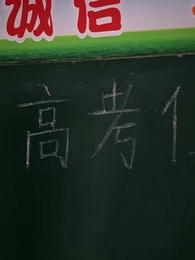 诚信
高考